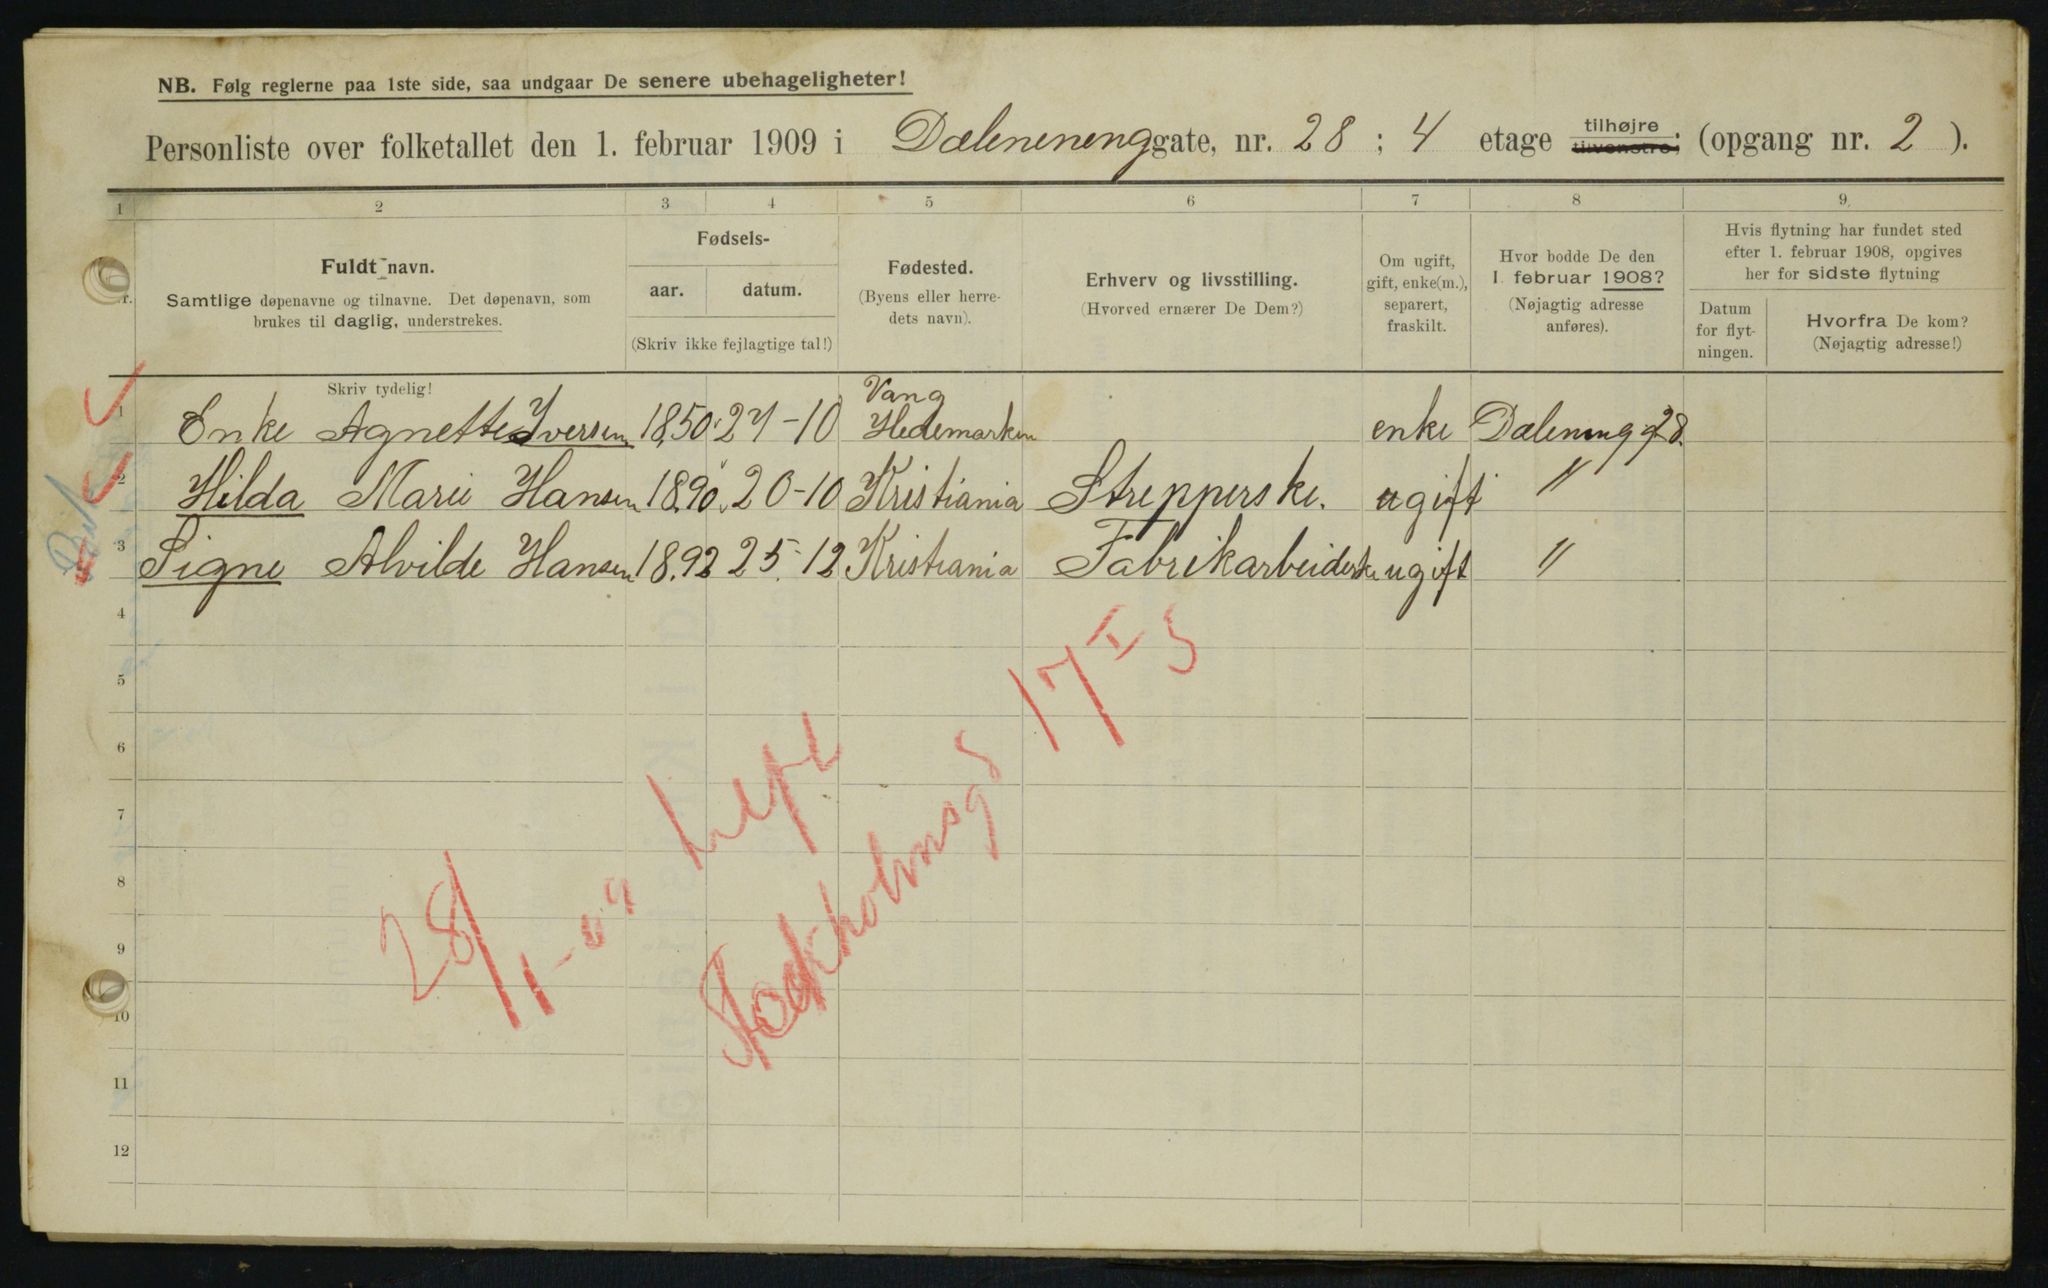 NB. Følg reglerne paa 1ste side, saa undgaar De senere ubehageligheter!
Personliste over folketallet den 1. februar 1909 i Dælenenenggate, nr. 28 ; 4 etage tilhøjre tilvenstre; (opgang nr. 2 ).
1 2 3 4 5 6 7 8 9.
Nr.
Fuldt navn.
Samtlige døpenavne og tilnavne. Det døpenavn, som
brukes til daglig, understrekes.
Fødsels-
aar. datum.
(Skriv ikke fejlagtige tal!)
Fødested.
(Byens eller herre-
dets navn).
Erhverv og livsstilling.
(Hvorved ernærer De Dem?)
Om ugift,
gift, enke(m.),
separert,
fraskilt.
Hvor bodde De den
1. februar 1908?
(Nøjagtig adresse
anføres).
Hvis flytning har fundet sted
efter 1. februar 1908, opgives
her for sidste flytning
Datum
for flyt-
ningen.
Hvorfra De kom?
(Nøjagtig adresse!)
Skriv tydelig!
1 Enke Agnette Iversen 1850 27-10 Vang Hedemarken enke Dæleneng g 28.
2 Hilda Marie Hansen 1890 20-10 Kristiania Strepperske. ugift "
3 Signe Alvilde Hansen 18.92 25-12 Kristiania Fabrikarbeiderske ugift "
4
5
6
7
8
9
10
11
12
28/1-09
Stockholmsgd 17 I s